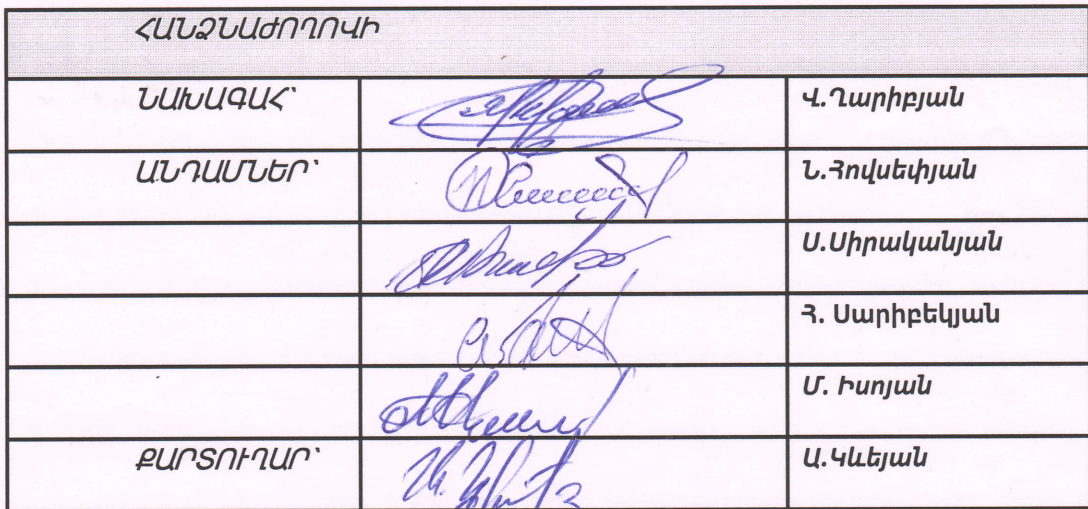 ՀԱՆՁՆԱԺՈՂՈՎԻ
ՆԱԽԱԳԱՀ՝ Վ.Ղարիբյան
ԱՆԴԱՄՆԵՐ՝ Ն.Հովսեփյան
Ս.Սիրականյան
Հ. Սարիբեկյան
Մ. Իսոյան
ՔԱՐՏՈՒՂԱՐ՝ Ա.Կևեյան